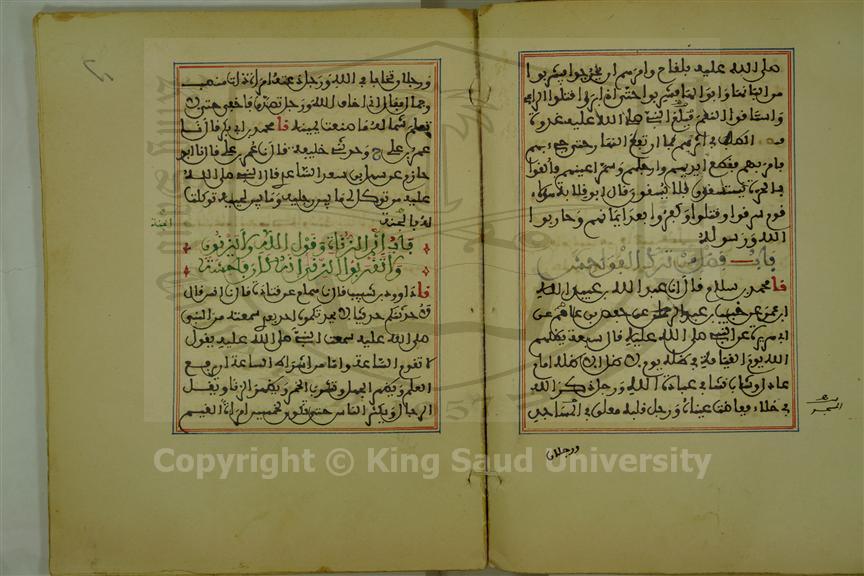 صلى الله عليه بلقاح وامرهم ان يخرجوا فيشربوا
من البانها وابوالها فشربوا حتى اذا برئوا قتلوا الراعي
واستاقوا النعم فبلغ النبي صلى الله عليه غدوة
الطلب في اثرهم فما ارتفع النهار حتى جيء بهم
فامر بهم فقطع ايديهم وارجلهم وسمر اعينهم فالقوا
بالحرة يستسقون فلا يسقون قال ابو قلابة هؤلاء
قوم سرقوا وقتلوا وكفروا بعد ايمانهم وحاربوا
الله ورسوله
باب فضل من ترك الفواحش
نا محمد بن سلام قال انا عبد الله عن عبيد الله
ابن عمر عن خبيب بن عبد الرحمن عن حفص بن عاصم عن
ابي هريرة عن النبي صلى الله عليه قال سبعة يظلهم
الله يوم القيامة في ظله يوم لا ظل الا ظله امام
عادل وشاب نشا في عبادة الله ورجل ذكر الله
في خلاء ففاضت عيناه ورجل قلبه معلق في المساجد
المسجد
ورجلان
ورجلان تحابا في الله ورجل دعته امراة ذات منصب
وجمال فقال اني اخاف الله ورجل تصدق فاخفى حتى لا
تعلم شماله ما صنعت يمينه نا محمد بن ابي بكر قال نا
عمر بن علي ح وحدثني خليفة قال نا عمر بن علي قال نا ابو
حازم عن سهل بن سعد الساعدي قال النبي صلى الله
عليه من توكل لي ما بين رجليه وما بين لحييه توكلت
له بالجنة
باب اثم الزناة وقول الله ولا يزنون
ولا تقربوا الزنى انه كان فاحشة
نا داوود بن شبيب قال نا همام عن قتادة قال نا انس قال
لاحدثنكم حديثا لا يحدثكموه احد بعدي سمعته من النبي
صلى الله عليه سمعت النبي صلى الله عليه يقول
لا تقوم الساعة واما من اشراط الساعة ان يرفع
العلم ويظهر الجهل وتشرب الخمر ويظهر الزنا ويقل
الرجال ويكثر النساء حتى تكون لخمسين امراة القيم
Copyright © King Saud University
1957